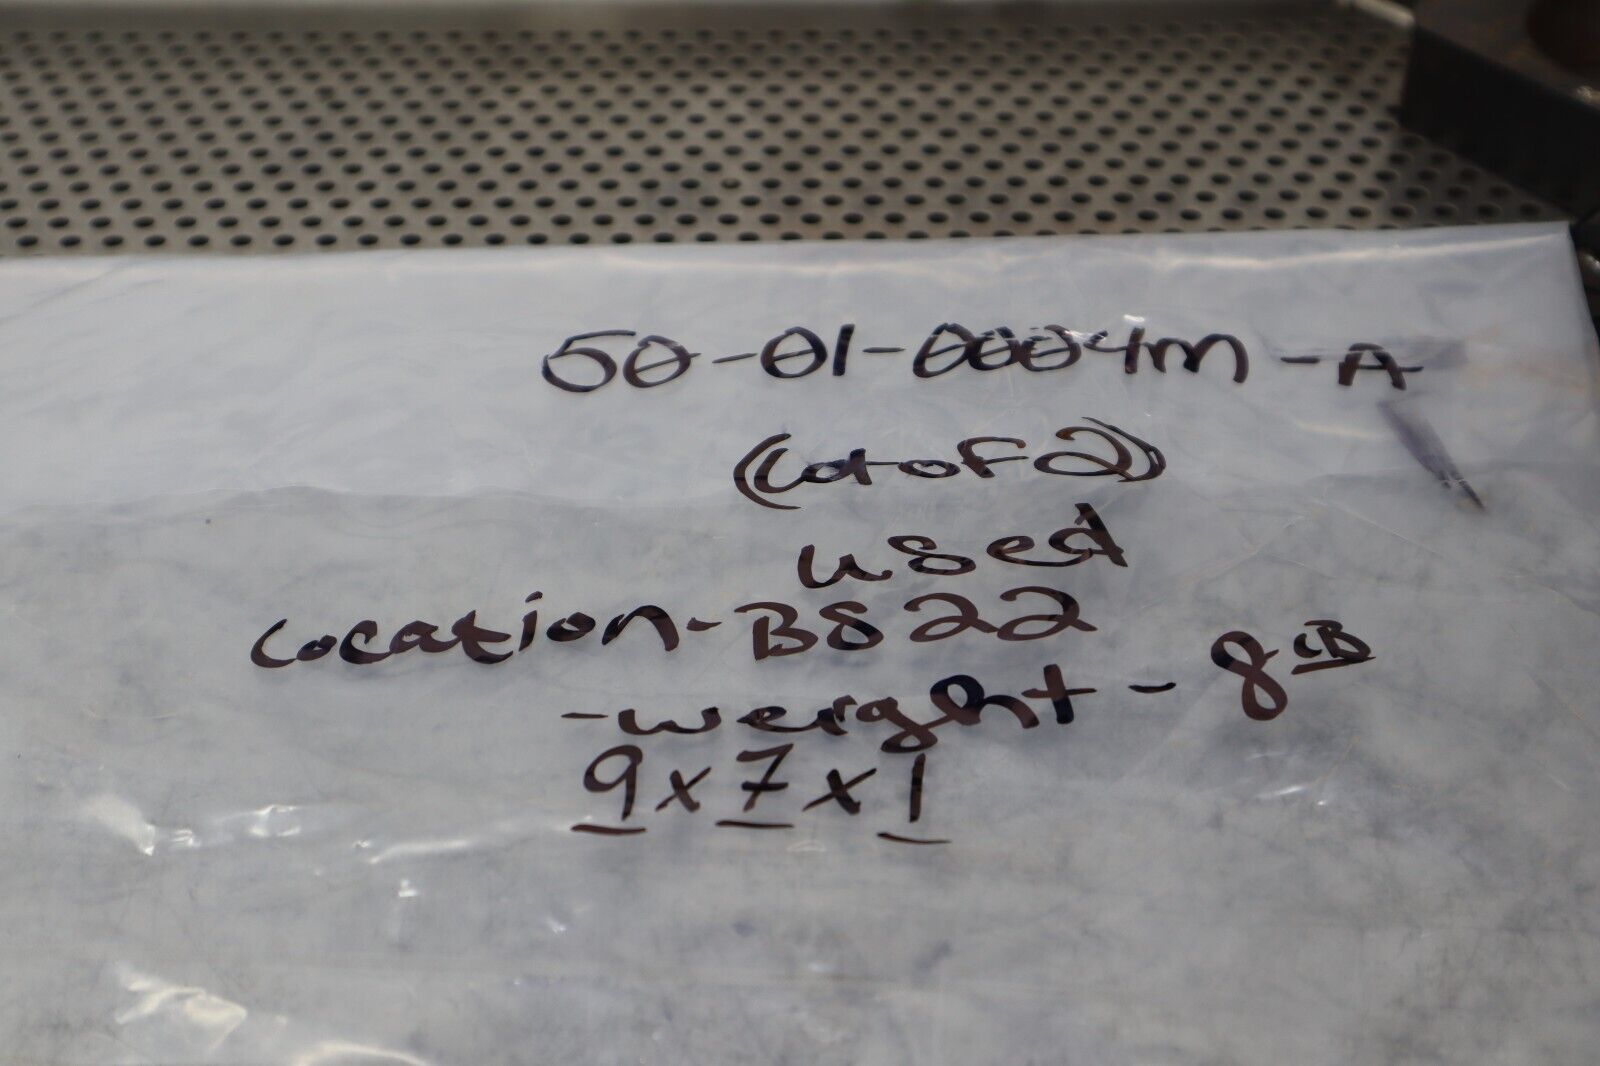 50-01-0004m-A
(Lot of 2)
used
Location-B822
-weight - 8 LB
9 x 7 x 1